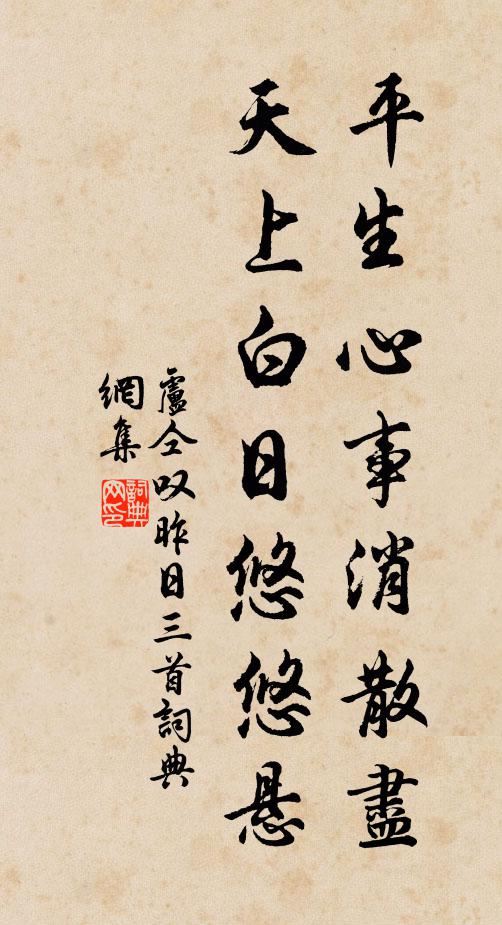 平生心事消散盡
天上白日悠悠悬
盧仝叹昨日三首詞典
網集
詞典
网印